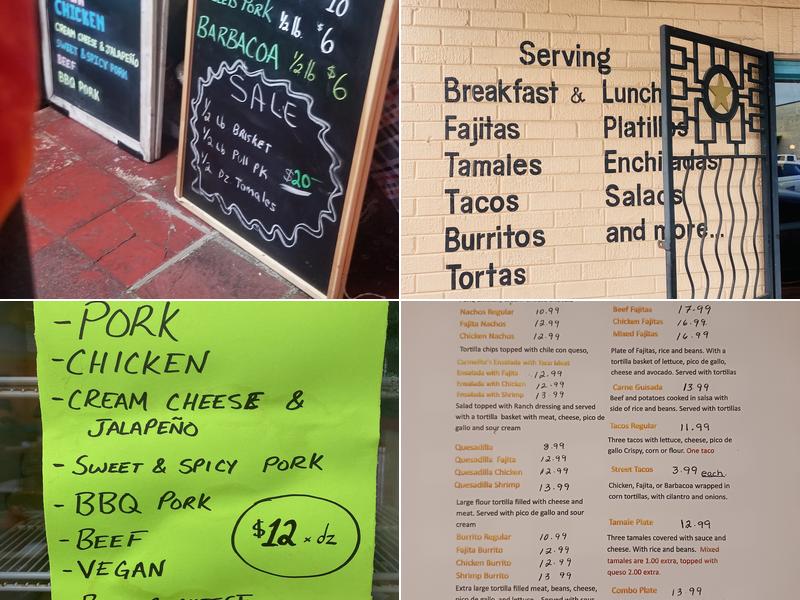 CHICKEN
CREAM CHEESE & JALAPEÑO
SWEET & SPICY PORK
BEEF
BBQ PORK
10
PORK 1/2 lb. $6
BARBACOA 1/2 lb $6
SALE
1/2 lb Brisket
1/2 lb Pull Pk
1/2 Dz Tamales
$20-
Serving
Breakfast & Lunch
Fajitas
Platillos
Tamales
Enchiladas
Tacos
Salads
Burritos
and more...
Tortas
-PORK
-CHICKEN
-CREAM CHEESE &
JALAPEÑO
-SWEET & SPICY PORK
-BBQ PORK
-BEEF
-VEGAN
$12 x dz
Nachos Regular 10.99
Fajita Nachos 12.99
Chicken Nachos 12.99
Tortilla chips topped with chile con queso,
Ensalada with Fajita 12.99
Ensalada with Chicken 12.99
Ensalada with Shrimp 13.99
Salad topped with Ranch dressing and served
with a tortilla basket with meat, cheese, pico de
gallo and sour cream
Quesadilla 8.99
Quesadilla Fajita 12.99
Quesadilla Chicken 12.99
Quesadilla Shrimp 13.99
Large flour tortilla filled with cheese and
meat. Served with pico de gallo and sour
cream
Burrito Regular 10.99
Fajita Burrito 12.99
Chicken Burrito 12.99
Shrimp Burrito 13 99
Extra large tortilla filled meat, beans, cheese,
Beef Fajitas 17.99
Chicken Fajitas 16.99
Mixed Fajitas 16.99
Plate of Fajitas, rice and beans. With a
tortilla basket of lettuce, pico de gallo,
cheese and avocado. Served with tortillas
Carne Guisada 13 99
Beef and potatoes cooked in salsa with
side of rice and beans. Served with tortillas
Tacos Regular 11.99
Three tacos with lettuce, cheese, pico de
gallo Crispy, corn or flour. One taco
Street Tacos 3.99 each
Chicken, Fajita, or Barbacoa wrapped in
corn tortillas, with cilantro and onions.
Tamale Plate 12.99
Three tamales covered with sauce and
cheese. With rice and beans. Mixed
tamales are 1.00 extra, topped with
queso 2.00 extra.
Combo Plate 13 99